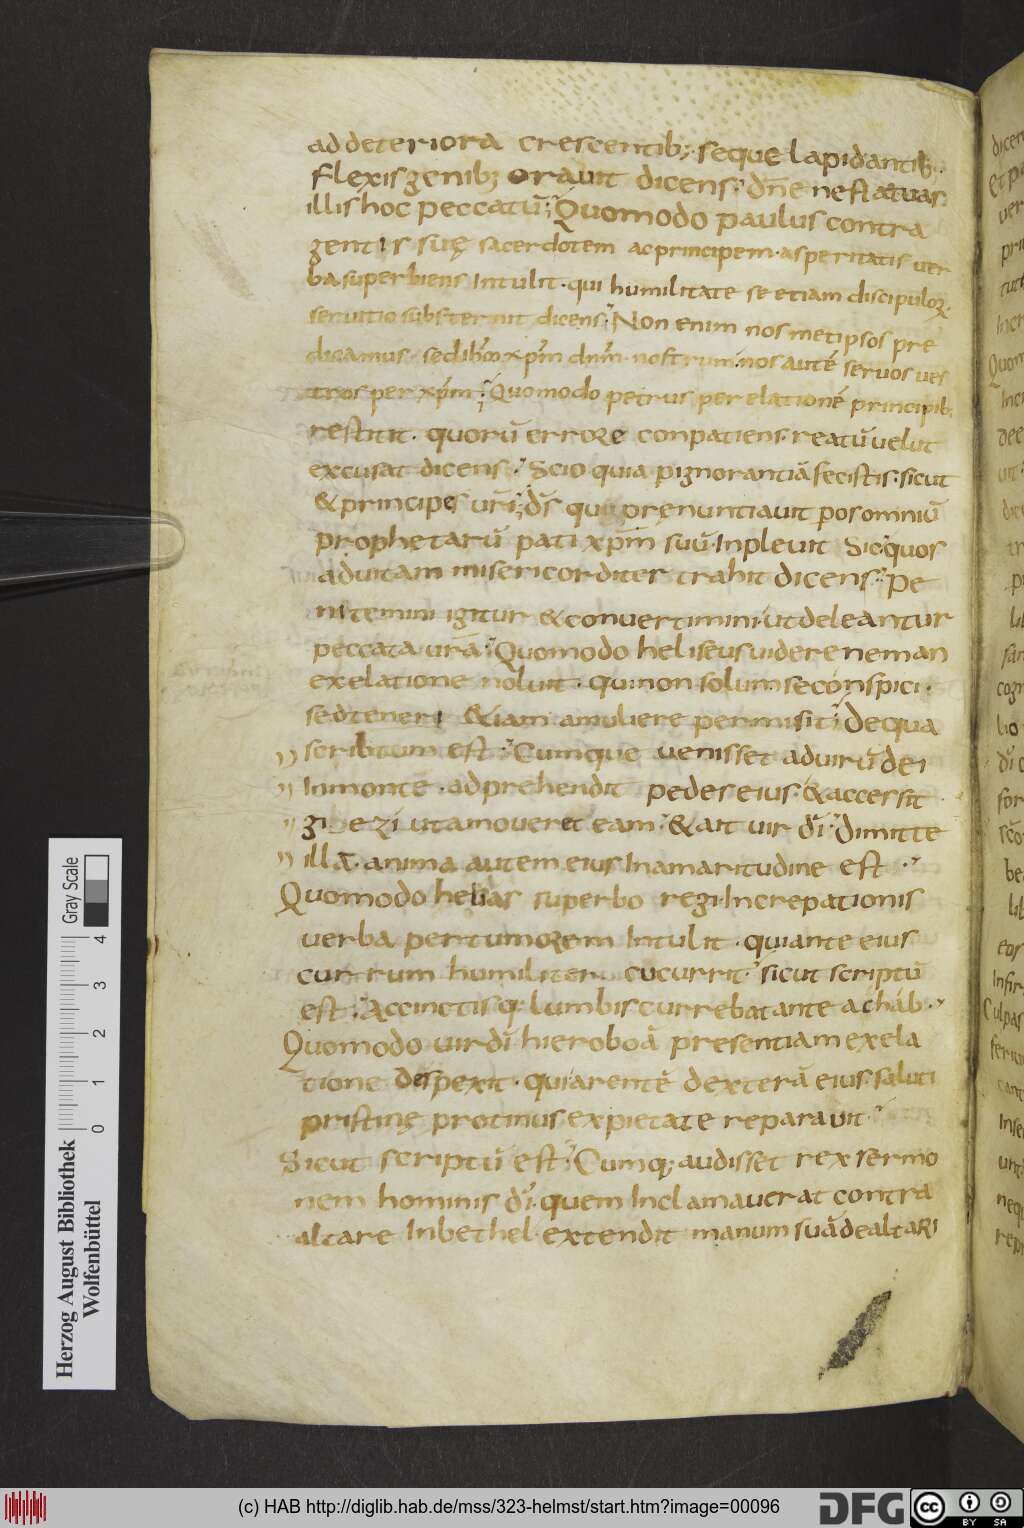 ad deteriora crescentib; seque lapidantib;
flexis genib; orauit dicens; dñe ne statuas
illis hoc peccatū; Quomodo paulus contra
gentis suę sacerdotem ac principem asperitatis uer
ba superbiens intulit qui humilitate se etiam discipuloꝝ
seruitio substernit dicens; Non enim nosmetipsos pre
dicamus sed ihm xpm dnm nostrum nos autē seruos ues
tros per xpm; Quomodo petrus per elationē principib;
restitit. quorū errore conpatiens reatū uelut
excusat dicens; Scio quia p ignorantiā fecistis sicut
& principes urī; ds qui prenuntiauit p os omniū
prophetarū pati xpm suū inpleuit Sicq; quos
ad uitam misericorditer trahit dicens; Pe
nitemini igitur & conuertimini ut deleantur
peccata urā; Quomodo heliseus uidere neman
ex elatione noluit qui non solum se conspici
sed teneri & iam a muliere permisit; De qua
scribtum est; Cumque uenisset ad uirū dei
In monte adprehendit pedes eius & accessit
giezi ut amoueret eam; & ait uir dī; Dimitte
illā anima autem eius In amaritudine est
Quomodo helias superbo regi Increpationis
uerba per tumorem Intulit. qui ante eius
currum humiliter cucurrit sicut scriptū
est; Accinctisq; lumbis currebat ante achab.
Quomodo uir dī hieroboā presentiam ex ela
tione despexit. qui arentē dexterā eius saluti
pristinę protinus ex pietate reparauit
Sicut scriptū est; Cumq; audisset rex sermo
nem hominis dī. quem Inclamauerat contra
altare In bethel extendit manum suā de altari
Herzog August Bibliothek
Wolfenbüttel
0 1 2 3 4
Gray Scale
(c) HAB http://diglib.hab.de/mss/323-helmst/start.htm?image=00096
DFG
cc BY SA